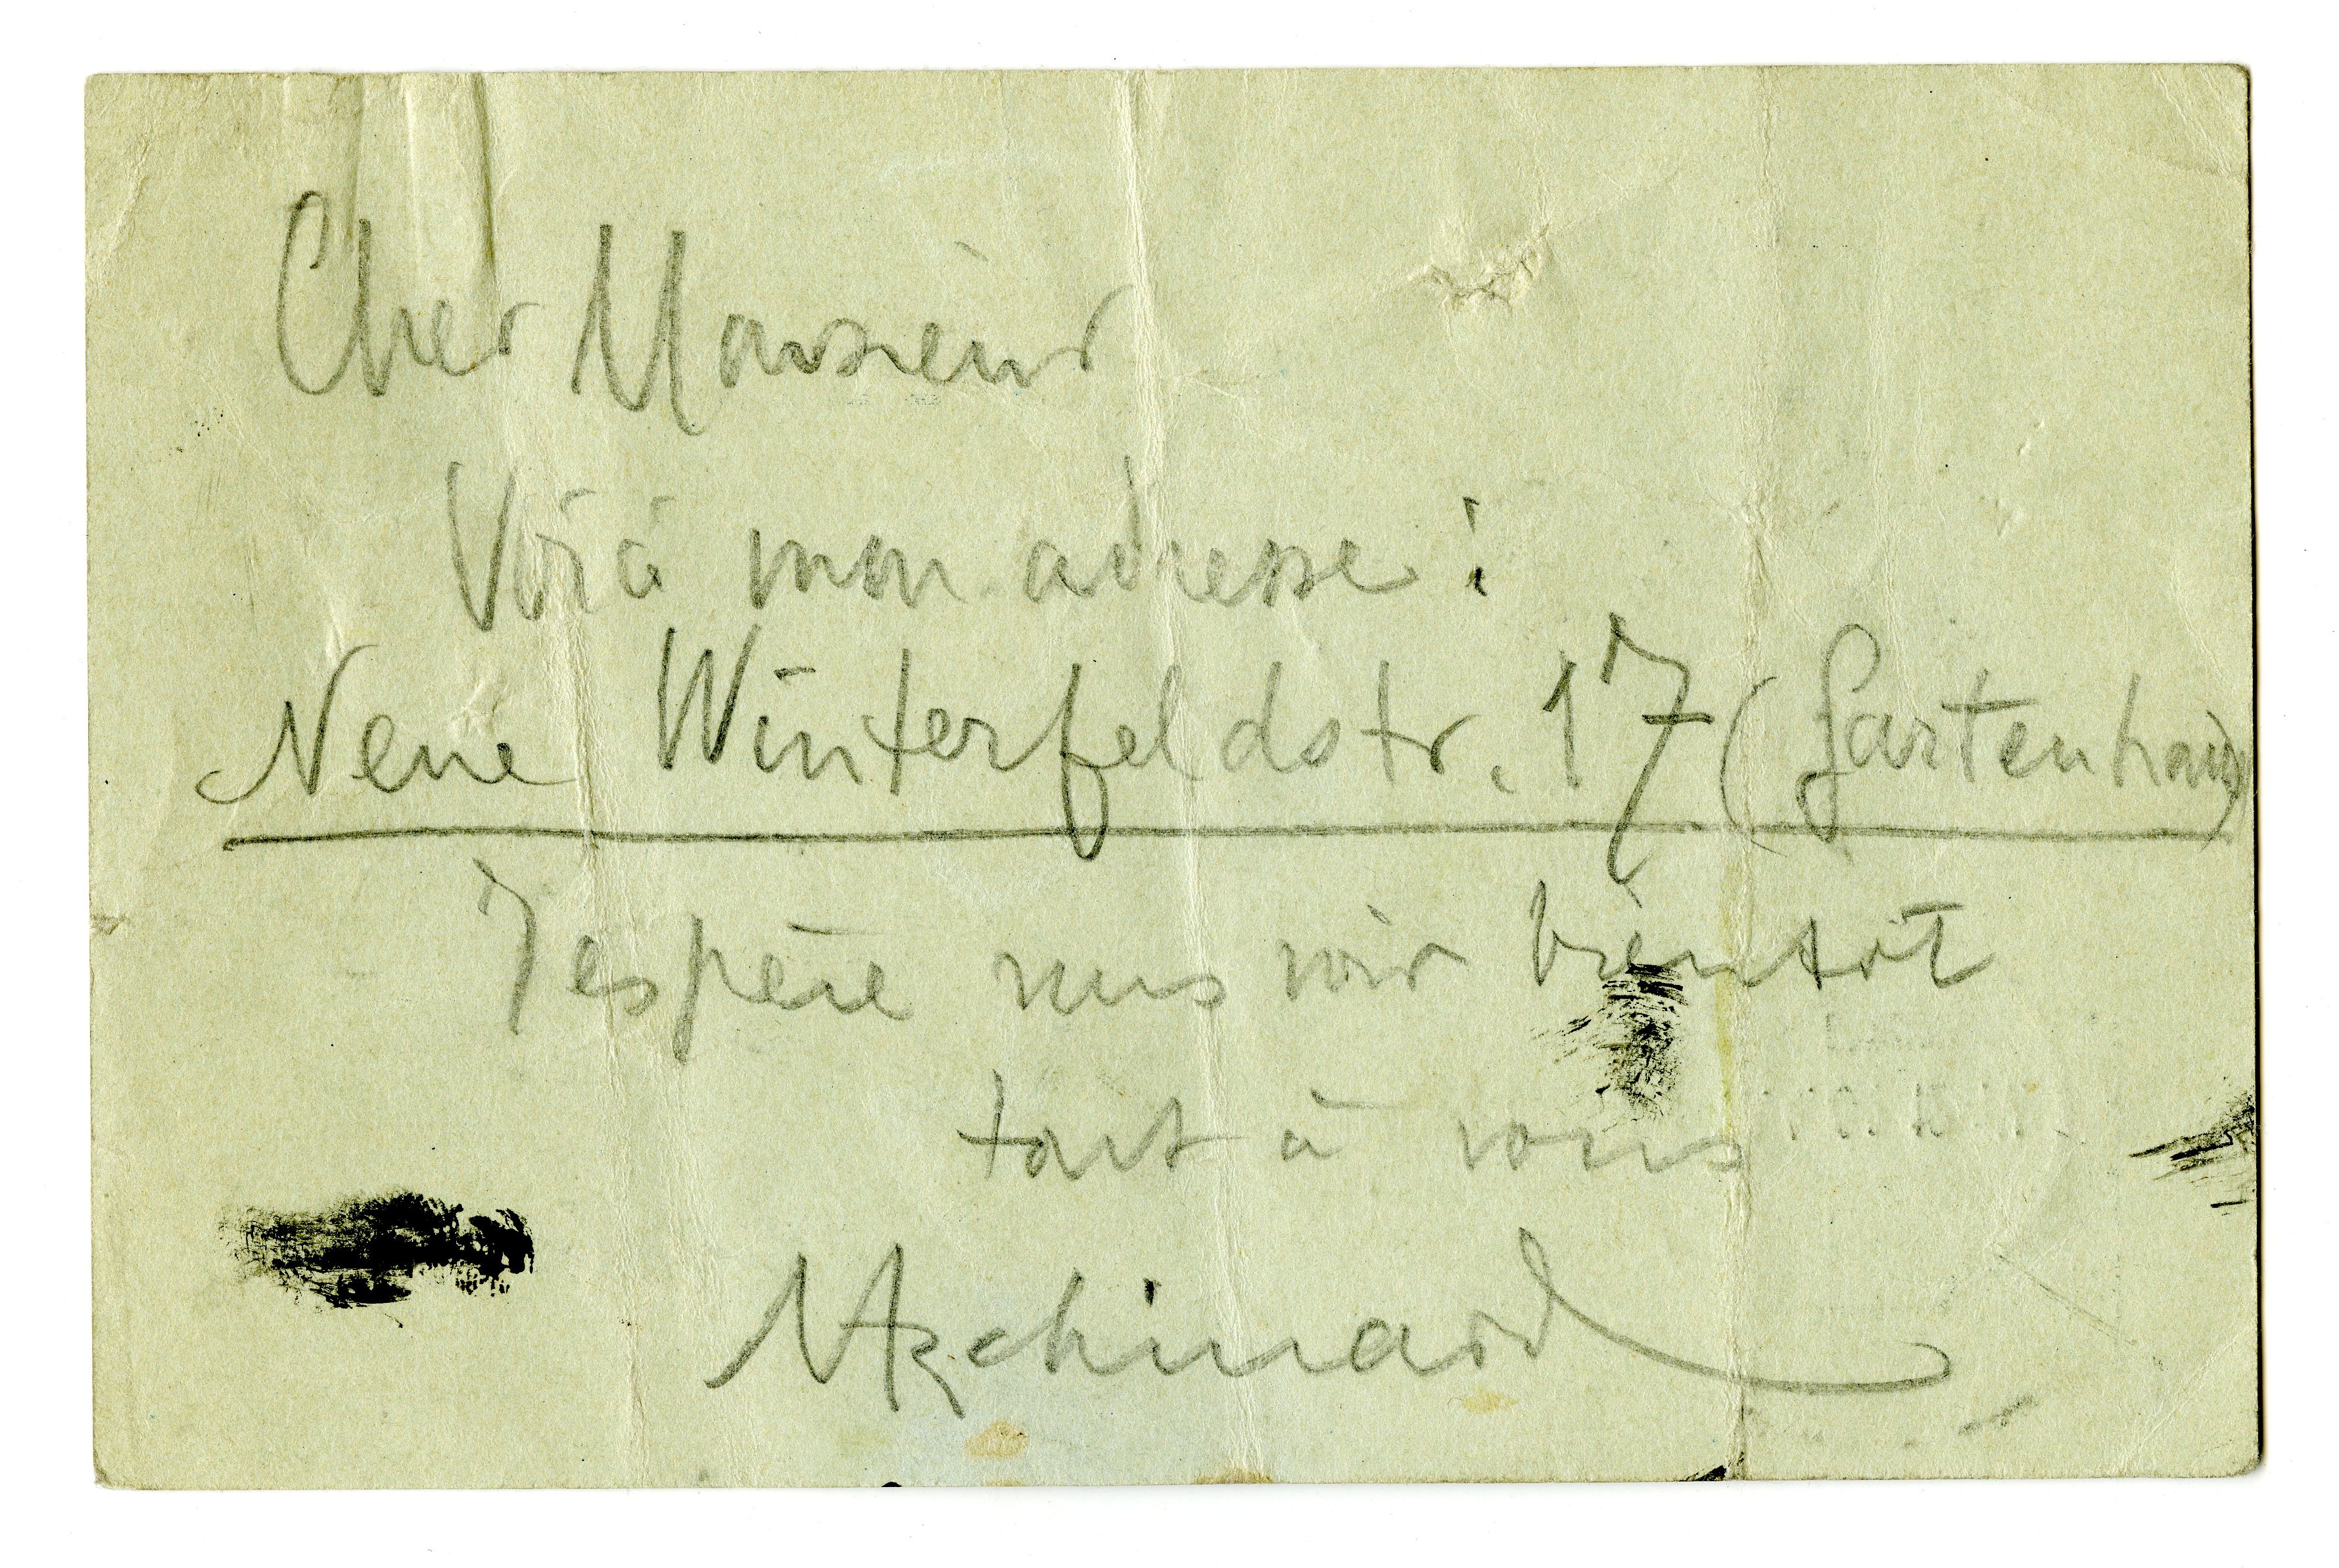 Cher Monsieur
Voici mon adresse :
Neue Winterfeldstr. 17 (Gartenhaus)
J'espère vous voir bientôt
tout à vous